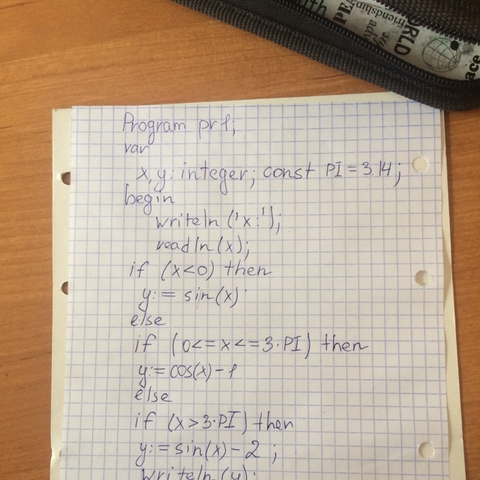 ORLD
friendship
adv
PE
th
ace
Program pr1;
var
x,y: integer; const PI = 3.14;
begin
writeln ('x:');
readln (x);
if (x<0) then
y:= sin(x)
else
if (0<= x <= 3·PI) then
y:= cos(x) - 1
else
if (x>3·PI) then
y:= sin(x) - 2 ;
writeln (y);